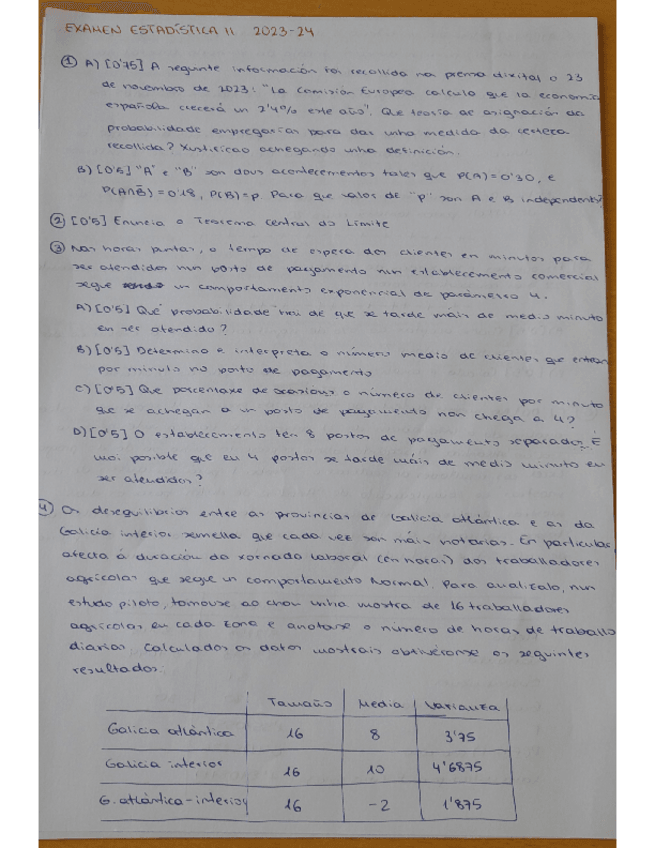 EXAMEN ESTADÍSTICA II 2023-24
① A) [0'75] A seguinte información foi recollida na prensa dixital o 23
de novembro de 2023: "La Comisión Europea calcula que la economía
española crecerá un 2'4% este año". Que teoría de asignación de
probabilidade empregarías para dar unha medida da certeza
recollida? Xustificao achegando unha definición.
B) [0'5] "A" e "B" son dous acontecementos tales que P(A)=0'30, e
P(A∩B̄)=0'18, P(B)=p. Para que valor de "p" son A e B independentes?
② [0'5] Enuncia o Teorema Central do Límite
③ Nas horas puntas, o tempo de espera dos clientes en minutos para
ser atendidos nun posto de pagamento nun establecemento comercial
segue un comportamento exponencial de parámetro 4.
A) [0'5] Qué probabilidade hai de que se tarde máis de medio minuto
en ser atendido?
B) [0'5] Determina e interpreta o número medio de clientes que entran
por minuto no posto de pagamento
C) [0'5] Que porcentaxe de ocasións o número de clientes por minuto
que se achegan a un posto de pagamento non chega a 4?
D) [0'5] O establecemento ten 8 postos de pagamento separados. É
moi posible que en 4 postos se tarde máis de medio minuto en
ser atendidos?
4) Os desequilibrios entre as provincias de Galicia atlántica e as da
Galicia interior semella que cada vez son máis notorias. En particular,
afecta á duración da xornada laboral (en horas) dos traballadores
agrícolas que segue un comportamento Normal. Para analizalo, nun
estudo piloto, tomouse ao chou unha mostra de 16 traballadores
agrícolas en cada zona e anotase o número de horas de traballo
diarias. Calculados os datos mostrais obtivéronse os seguintes
resultados:
Tamaño Media Varianza
Galicia atlántica 16 8 3'75
Galicia interior 16 10 4'6875
G. atlántica-interior 16 -2 1'875